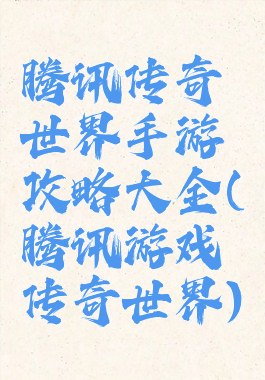 腾讯传奇
世界手游
攻略大全(
腾讯游戏
传奇世界)